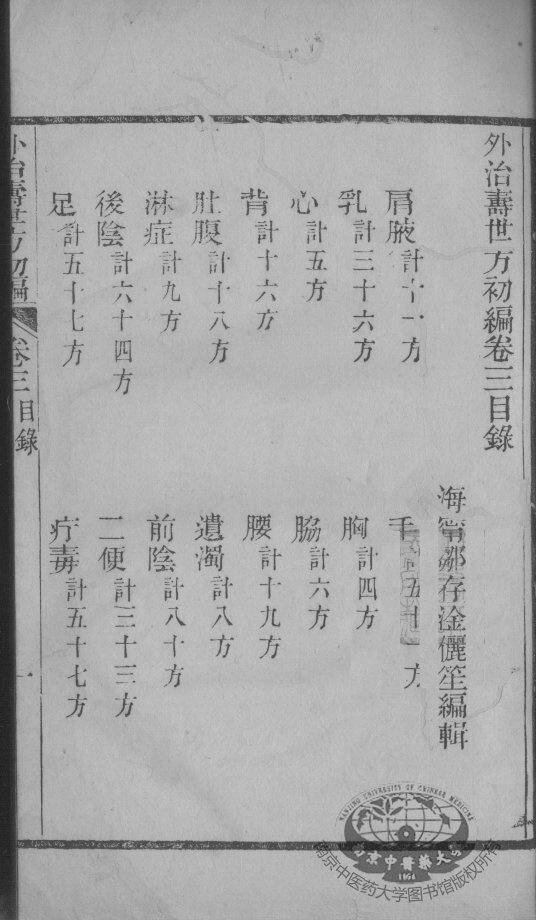 外治壽世方初編卷三目錄
海寧鄒存淦儷笙編輯
肩腋計十一方
手計五十一方
乳計三十六方
胸計四方
心計五方
脇計六方
背計十六方
腰計十九方
肚腹計十八方
遺濁計八方
淋症計九方
前陰計八十方
後陰計六十四方
二便計三十三方
足計五十七方
疔毒計五十七方
外治壽世方初編 卷三目錄 一
NANJING UNIVERSITY OF CHINESE MEDICINE
南京中醫藥大學
1954
南京中医药大学图书馆版权所有